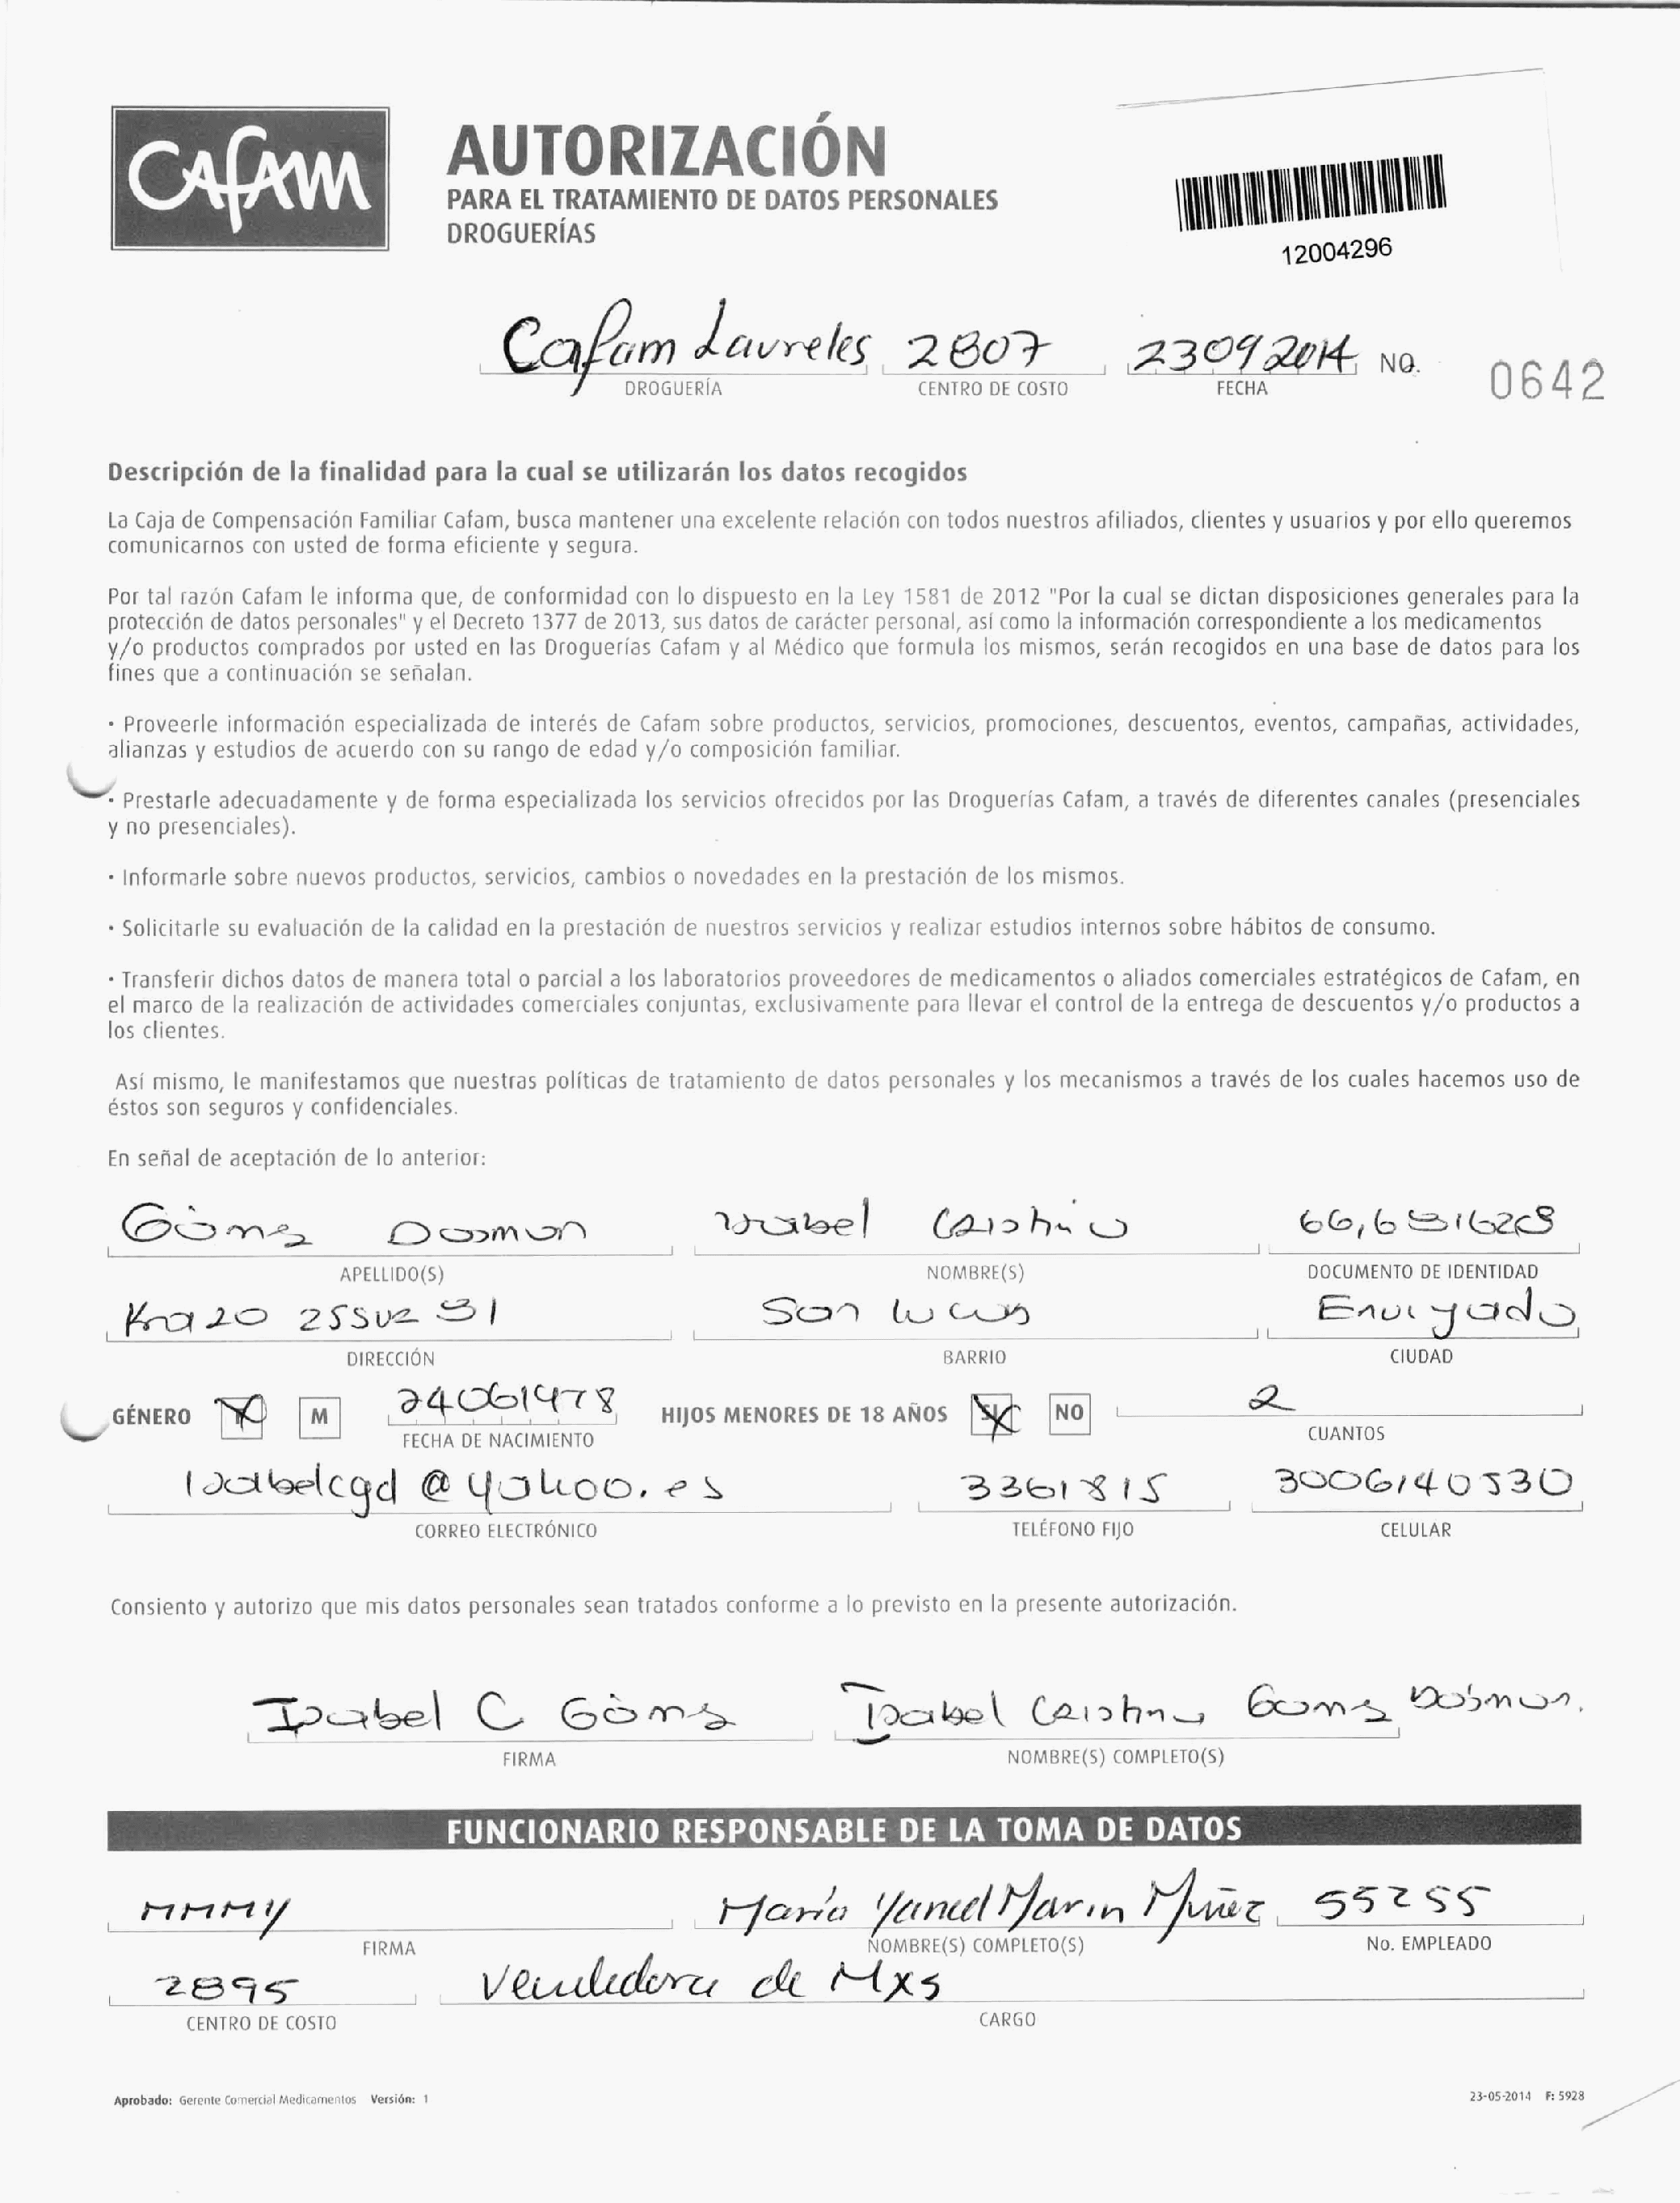 CAFAM
AUTORIZACIÓN
PARA EL TRATAMIENTO DE DATOS PERSONALES
DROGUERÍAS
12004296
Cafam Laureles 2807 23092014 NO. 0642
DROGUERÍA CENTRO DE COSTO FECHA
Descripción de la finalidad para la cual se utilizarán los datos recogidos
La Caja de Compensación Familiar Cafam, busca mantener una excelente relación con todos nuestros afiliados, clientes y usuarios y por ello queremos
comunicarnos con usted de forma eficiente y segura.
Por tal razón Cafam le informa que, de conformidad con lo dispuesto en la Ley 1581 de 2012 "Por la cual se dictan disposiciones generales para la
protección de datos personales" y el Decreto 1377 de 2013, sus datos de carácter personal, así como la información correspondiente a los medicamentos
y/o productos comprados por usted en las Droguerías Cafam y al Médico que formula los mismos, serán recogidos en una base de datos para los
fines que a continuación se señalan.
· Proveerle información especializada de interés de Cafam sobre productos, servicios, promociones, descuentos, eventos, campañas, actividades,
alianzas y estudios de acuerdo con su rango de edad y/o composición familiar.
· Prestarle adecuadamente y de forma especializada los servicios ofrecidos por las Droguerías Cafam, a través de diferentes canales (presenciales
y no presenciales).
· Informarle sobre nuevos productos, servicios, cambios o novedades en la prestación de los mismos.
· Solicitarle su evaluación de la calidad en la prestación de nuestros servicios y realizar estudios internos sobre hábitos de consumo.
· Transferir dichos datos de manera total o parcial a los laboratorios proveedores de medicamentos o aliados comerciales estratégicos de Cafam, en
el marco de la realización de actividades comerciales conjuntas, exclusivamente para llevar el control de la entrega de descuentos y/o productos a
los clientes.
Así mismo, le manifestamos que nuestras políticas de tratamiento de datos personales y los mecanismos a través de los cuales hacemos uso de
éstos son seguros y confidenciales.
En señal de aceptación de lo anterior:
Gómez Isabel Cristina
APELLIDO(S) NOMBRE(S) DOCUMENTO DE IDENTIDAD
Kra 20 25 31 San Lucas Envigado
DIRECCIÓN BARRIO CIUDAD
GÉNERO M 24061978 HIJOS MENORES DE 18 AÑOS SI NO 2
FECHA DE NACIMIENTO CUANTOS
isabelcgd@yahoo.es 3361815 3006140530
CORREO ELECTRÓNICO TELÉFONO FIJO CELULAR
Consiento y autorizo que mis datos personales sean tratados conforme a lo previsto en la presente autorización.
Isabel C Gómez Isabel Cristina Gómez
FIRMA NOMBRE(S) COMPLETO(S)
FUNCIONARIO RESPONSABLE DE LA TOMA DE DATOS
MMMY María Yaned Marin Muñez 55255
FIRMA NOMBRE(S) COMPLETO(S) No. EMPLEADO
2895 Vendedora de Mxs
CENTRO DE COSTO CARGO
Aprobado: Gerente Comercial Medicamentos Versión: 1 23-05-2014 F: 5928